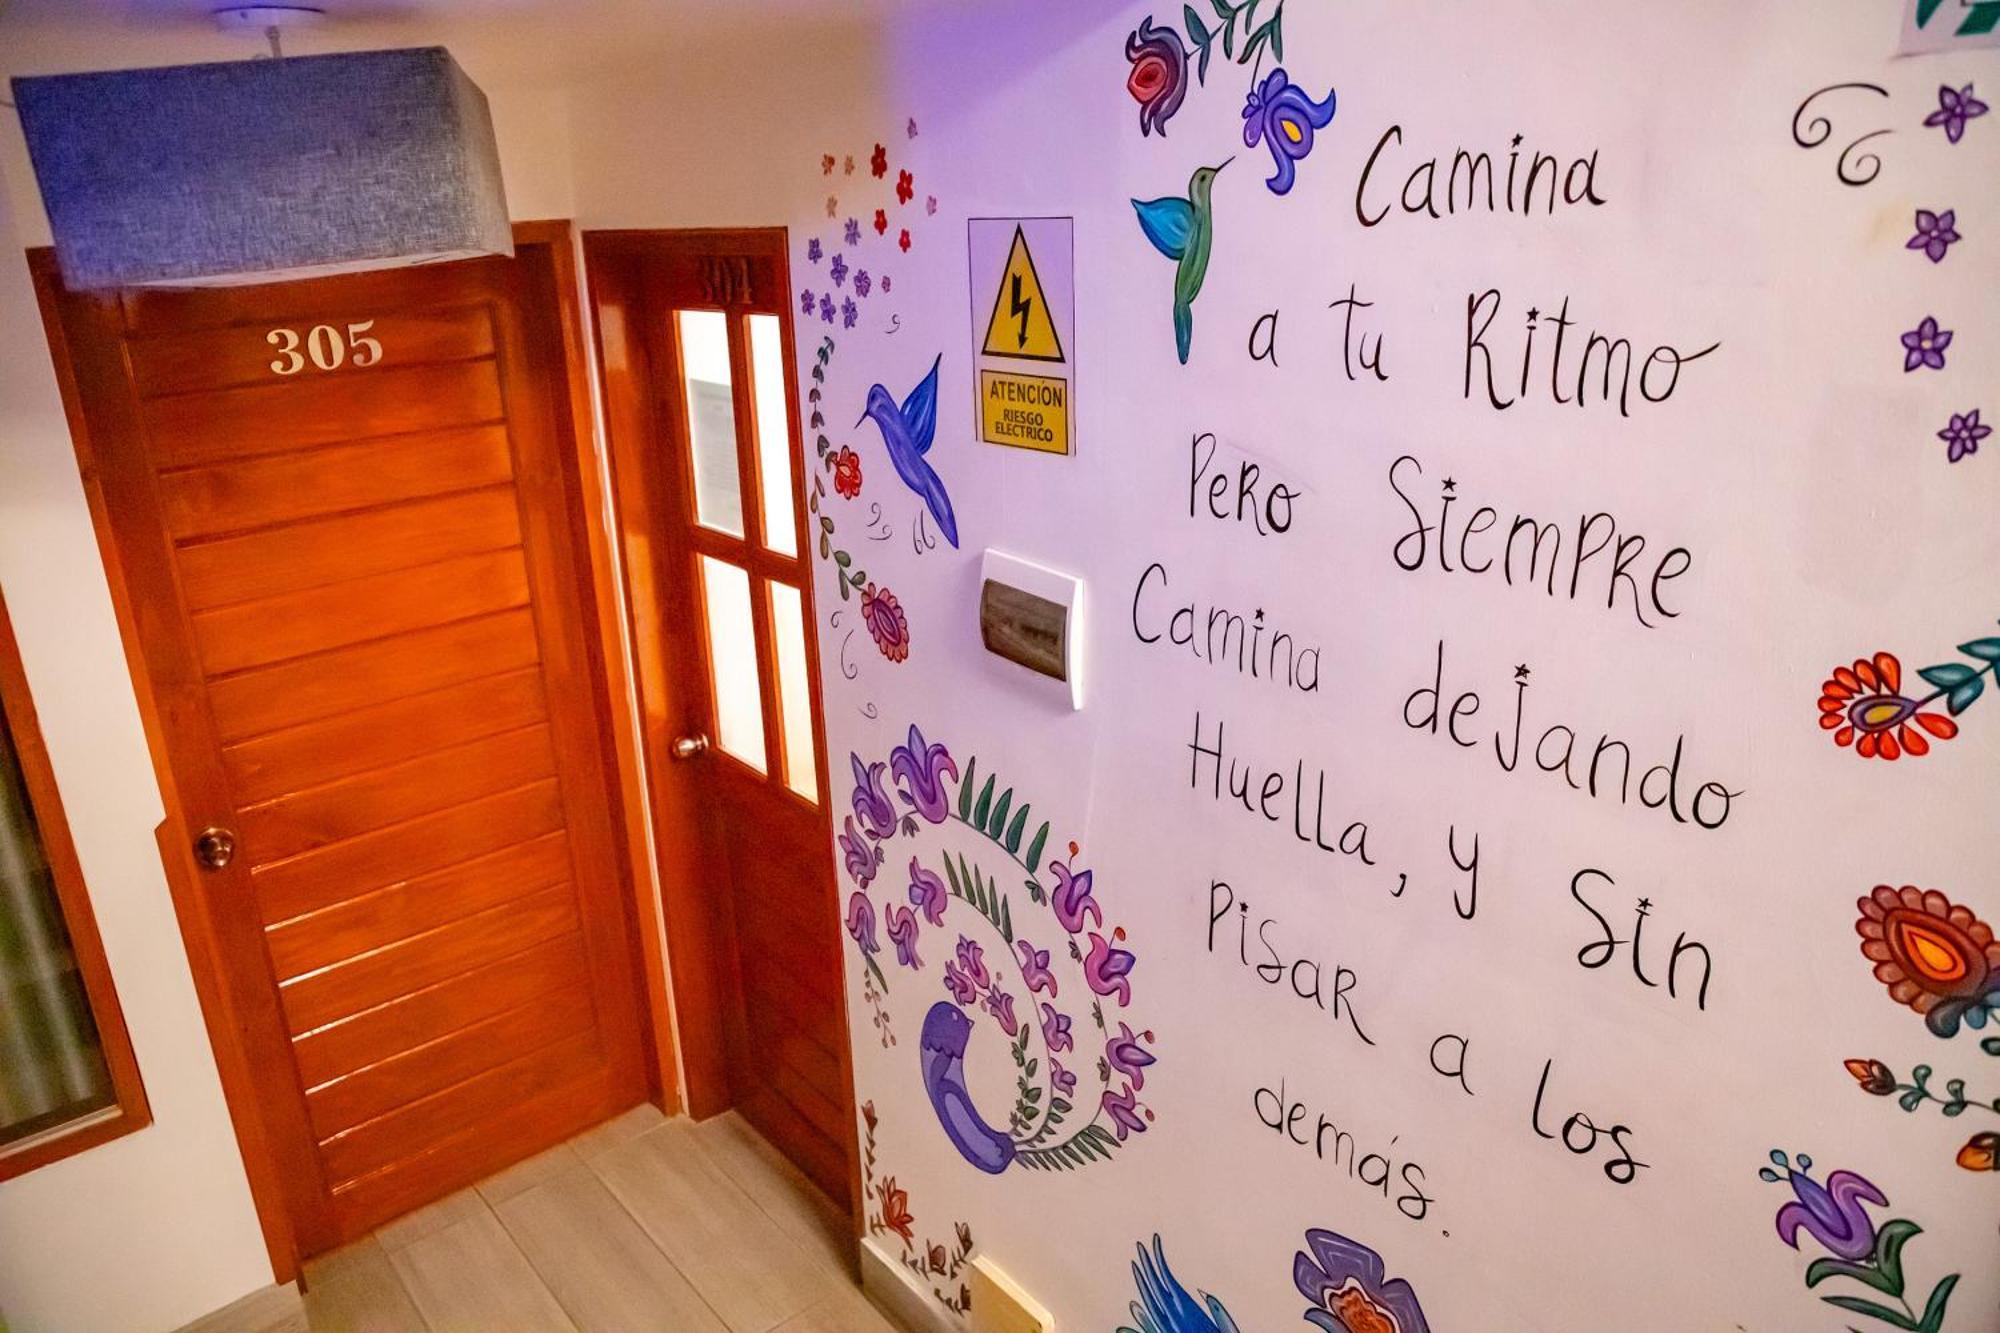 305
304
ATENCIÓN
RIESGO
ELECTRICO
Camina
a tu Ritmo
Pero Siempre
Camina dejando
Huella, y Sin
Pisar a los
demás.